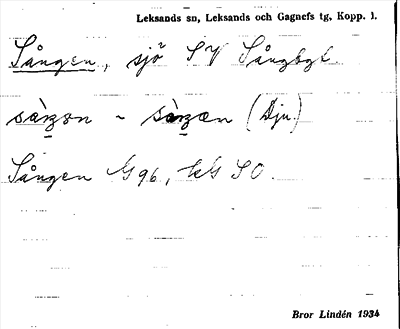 Leksands sn, Leksands och Gagnefs tg, Kopp. l.
Sången, sjö SV Sångbyt.
sàŋən ~ sàŋæn (Dju.)
Sången G96, SO.
Bror Lindén 1934